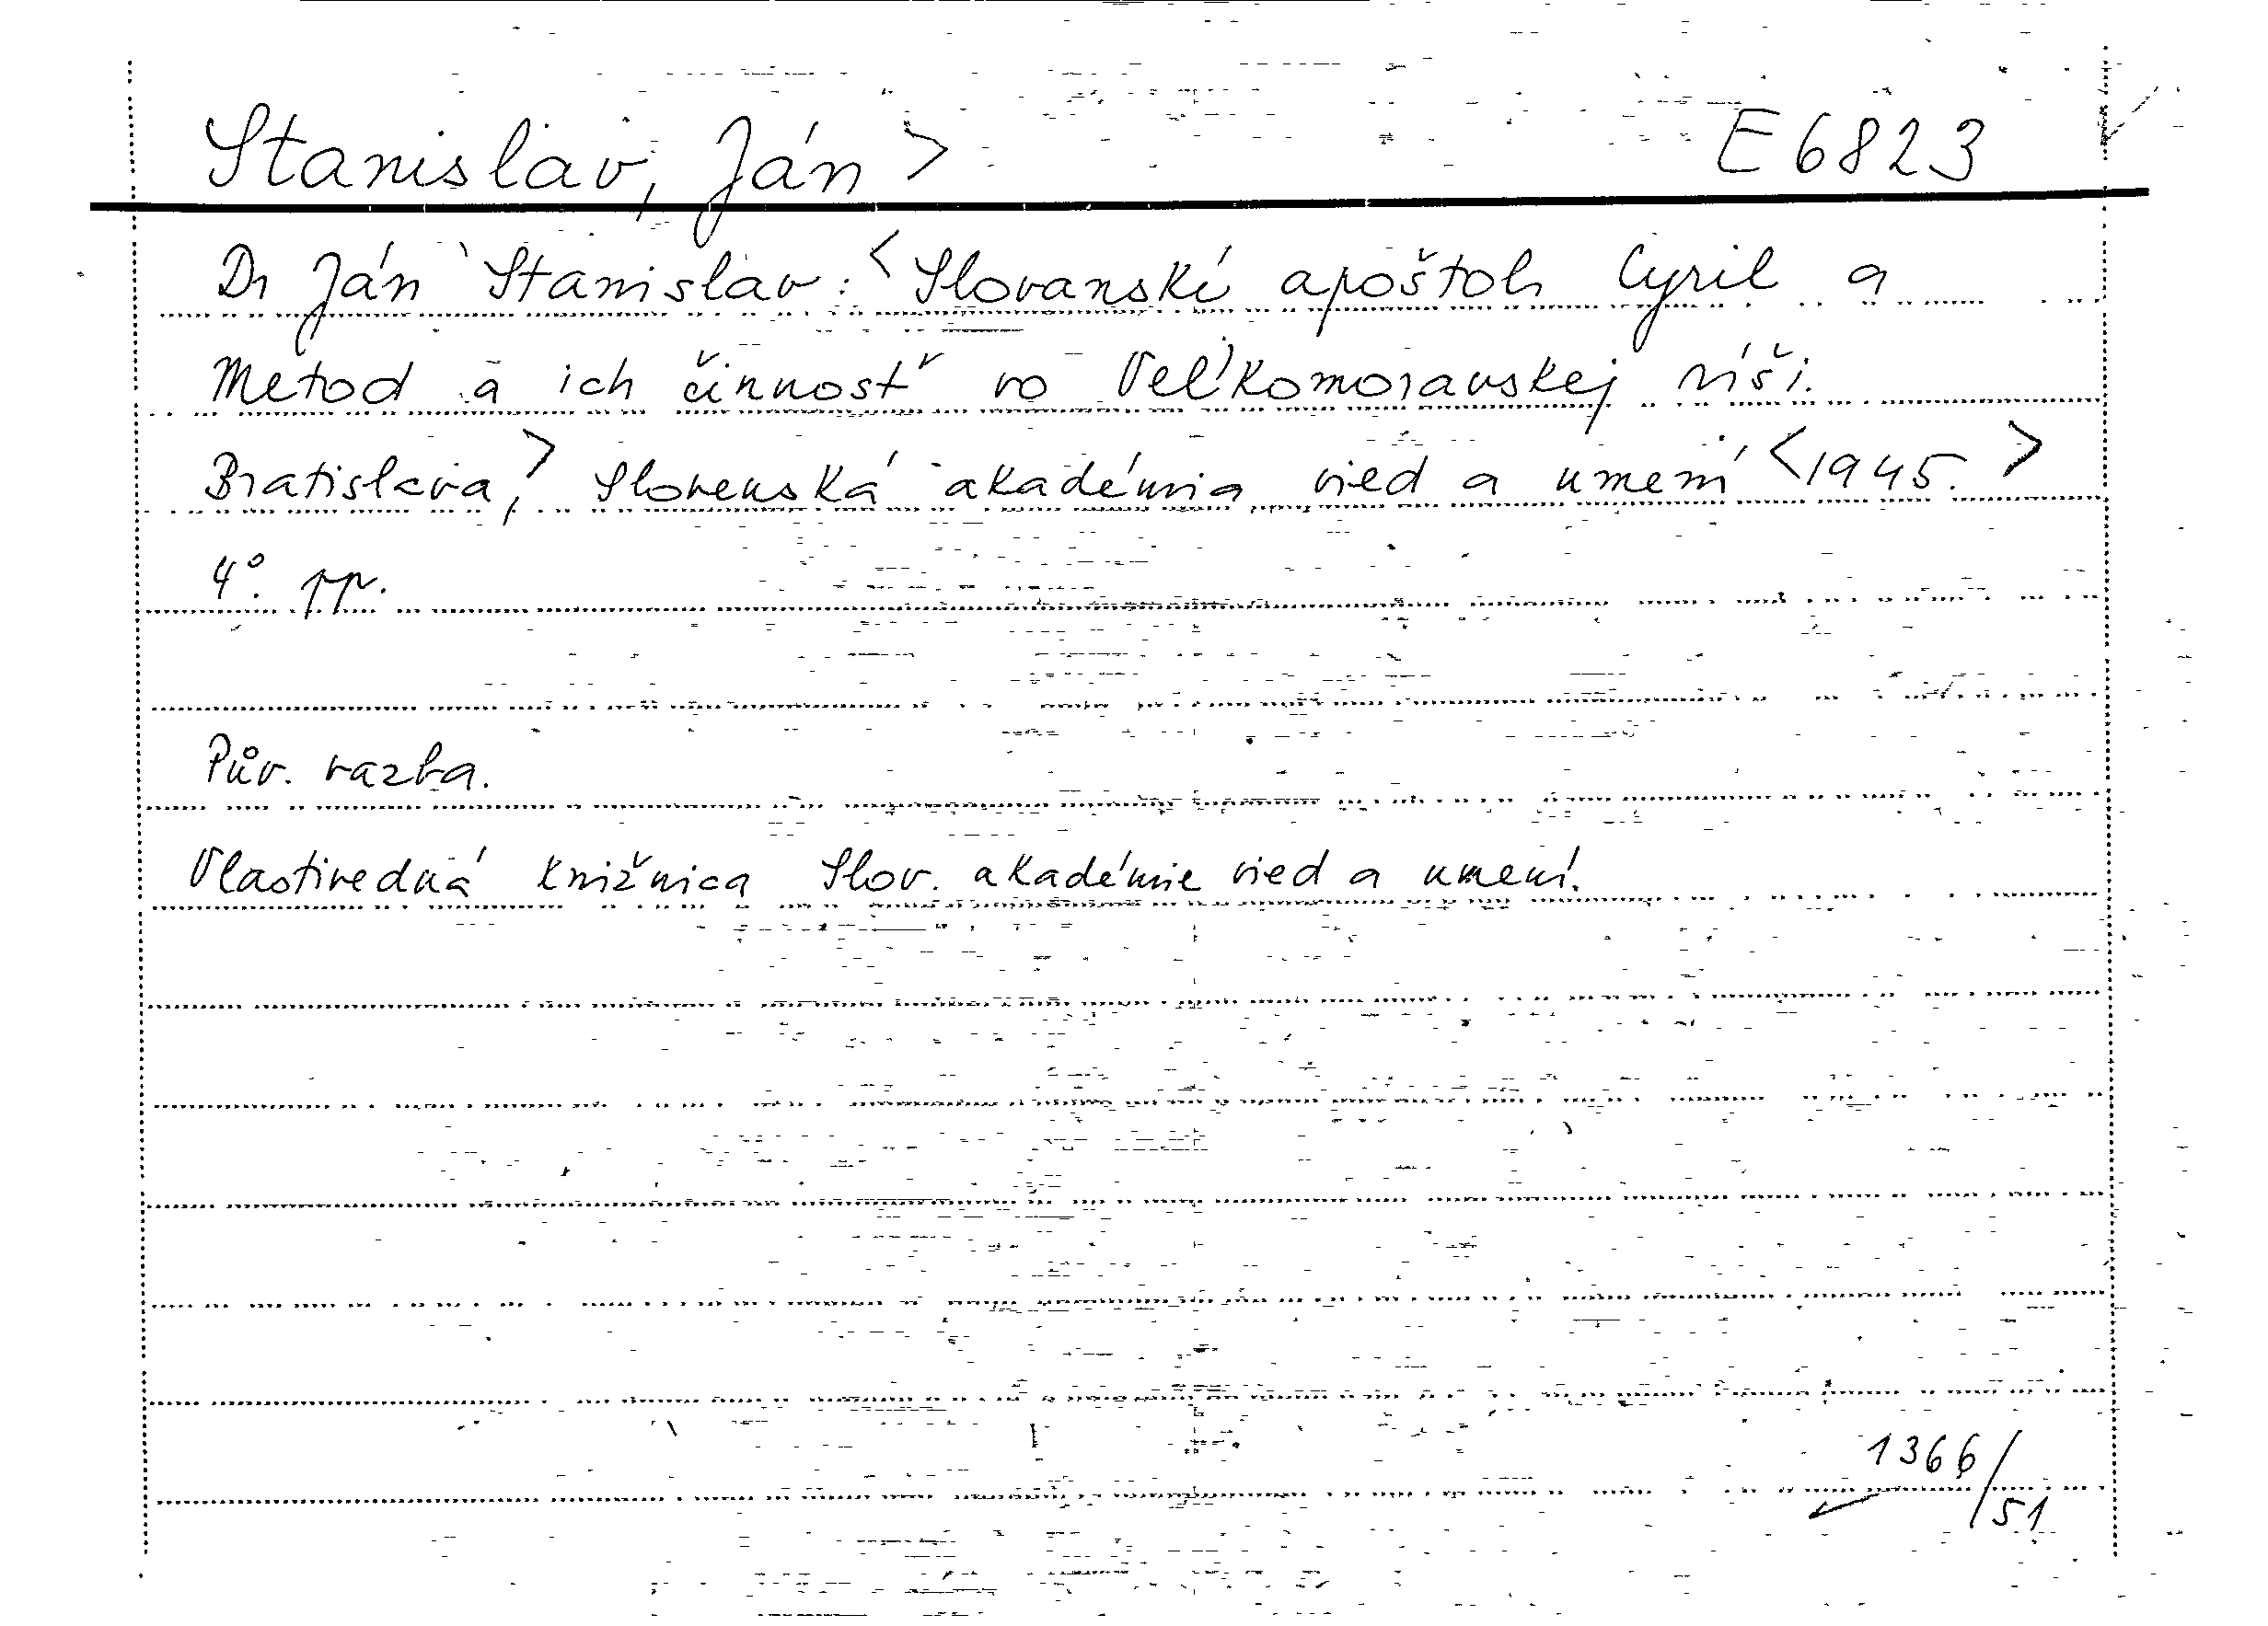 Stanislav, Ján > E 6823
Dr Ján Stanislav: < Slovanskí apoštoli Cyril a
Metod a ich činnosť vo Veľkomoravskej ríši.
Bratislava, > Slovenská akadémia vied a umení < 1945. >
4°. pp.
Pův. vazba.
Vlastivedná knižnica Slov. akadémie vied a umení.
1366/51